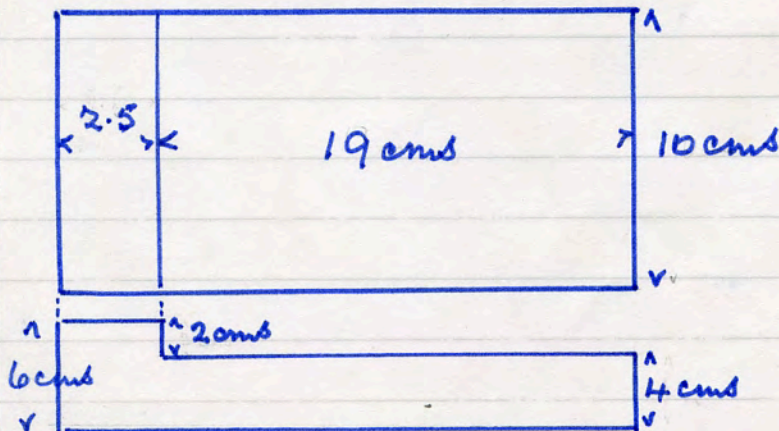 2.5
19 cms
10 cms
2 cms
6 cms
4 cms